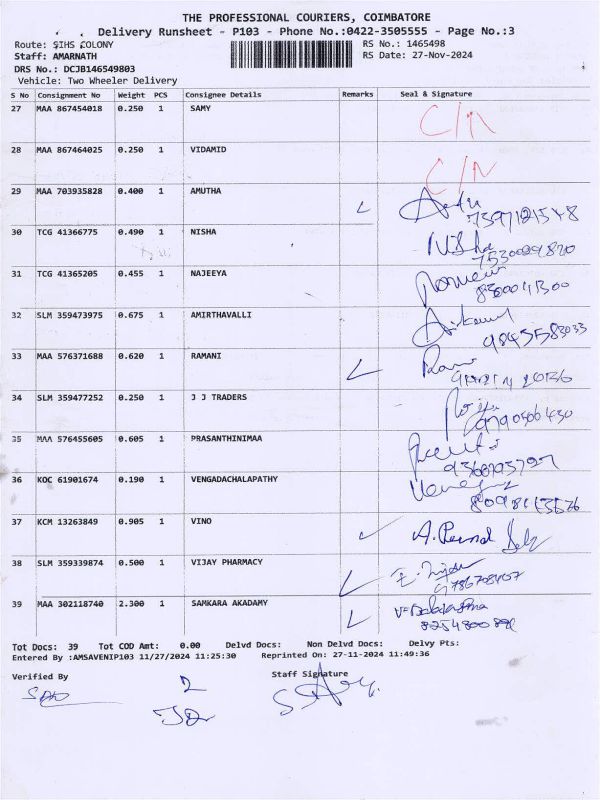 THE PROFESSIONAL COURIERS, COIMBATORE
Delivery Runsheet - P103 - Phone No.:0422-3505555 - Page No.:3
Route: SIHS COLONY RS No.: 1465498
Staff: AMARNATH RS Date: 27-Nov-2024
DRS No.: DCJB146549803
Vehicle: Two Wheeler Delivery
S No Consignment No Weight PCS Consignee Details Remarks Seal & Signature
27 MAA 867454018 0.250 1 SAMY C/N
28 MAA 867464025 0.250 1 VIDAMID C/N
29 MAA 703935828 0.400 1 AMUTHA
30 TCG 41366775 0.490 1 NISHA Nisha
31 TCG 41365205 0.455 1 NAJEEYA
32 SLM 359473975 0.675 1 AMIRTHAVALLI
33 MAA 576371688 0.620 1 RAMANI
34 SLM 359477252 0.250 1 J J TRADERS
35 MAA 576455605 0.605 1 PRASANTHINIMAA
36 KOC 61901674 0.190 1 VENGADACHALAPATHY
37 KCM 13263849 0.905 1 VINO
38 SLM 359339874 0.500 1 VIJAY PHARMACY
39 MAA 302118740 2.300 1 SAMKARA AKADAMY
Tot Docs: 39 Tot COD Amt: 0.00 Delvd Docs: Non Delvd Docs: Delvy Pts:
Entered By :AMSAVENIP103 11/27/2024 11:25:30 Reprinted On: 27-11-2024 11:49:36
Verified By Staff Signature